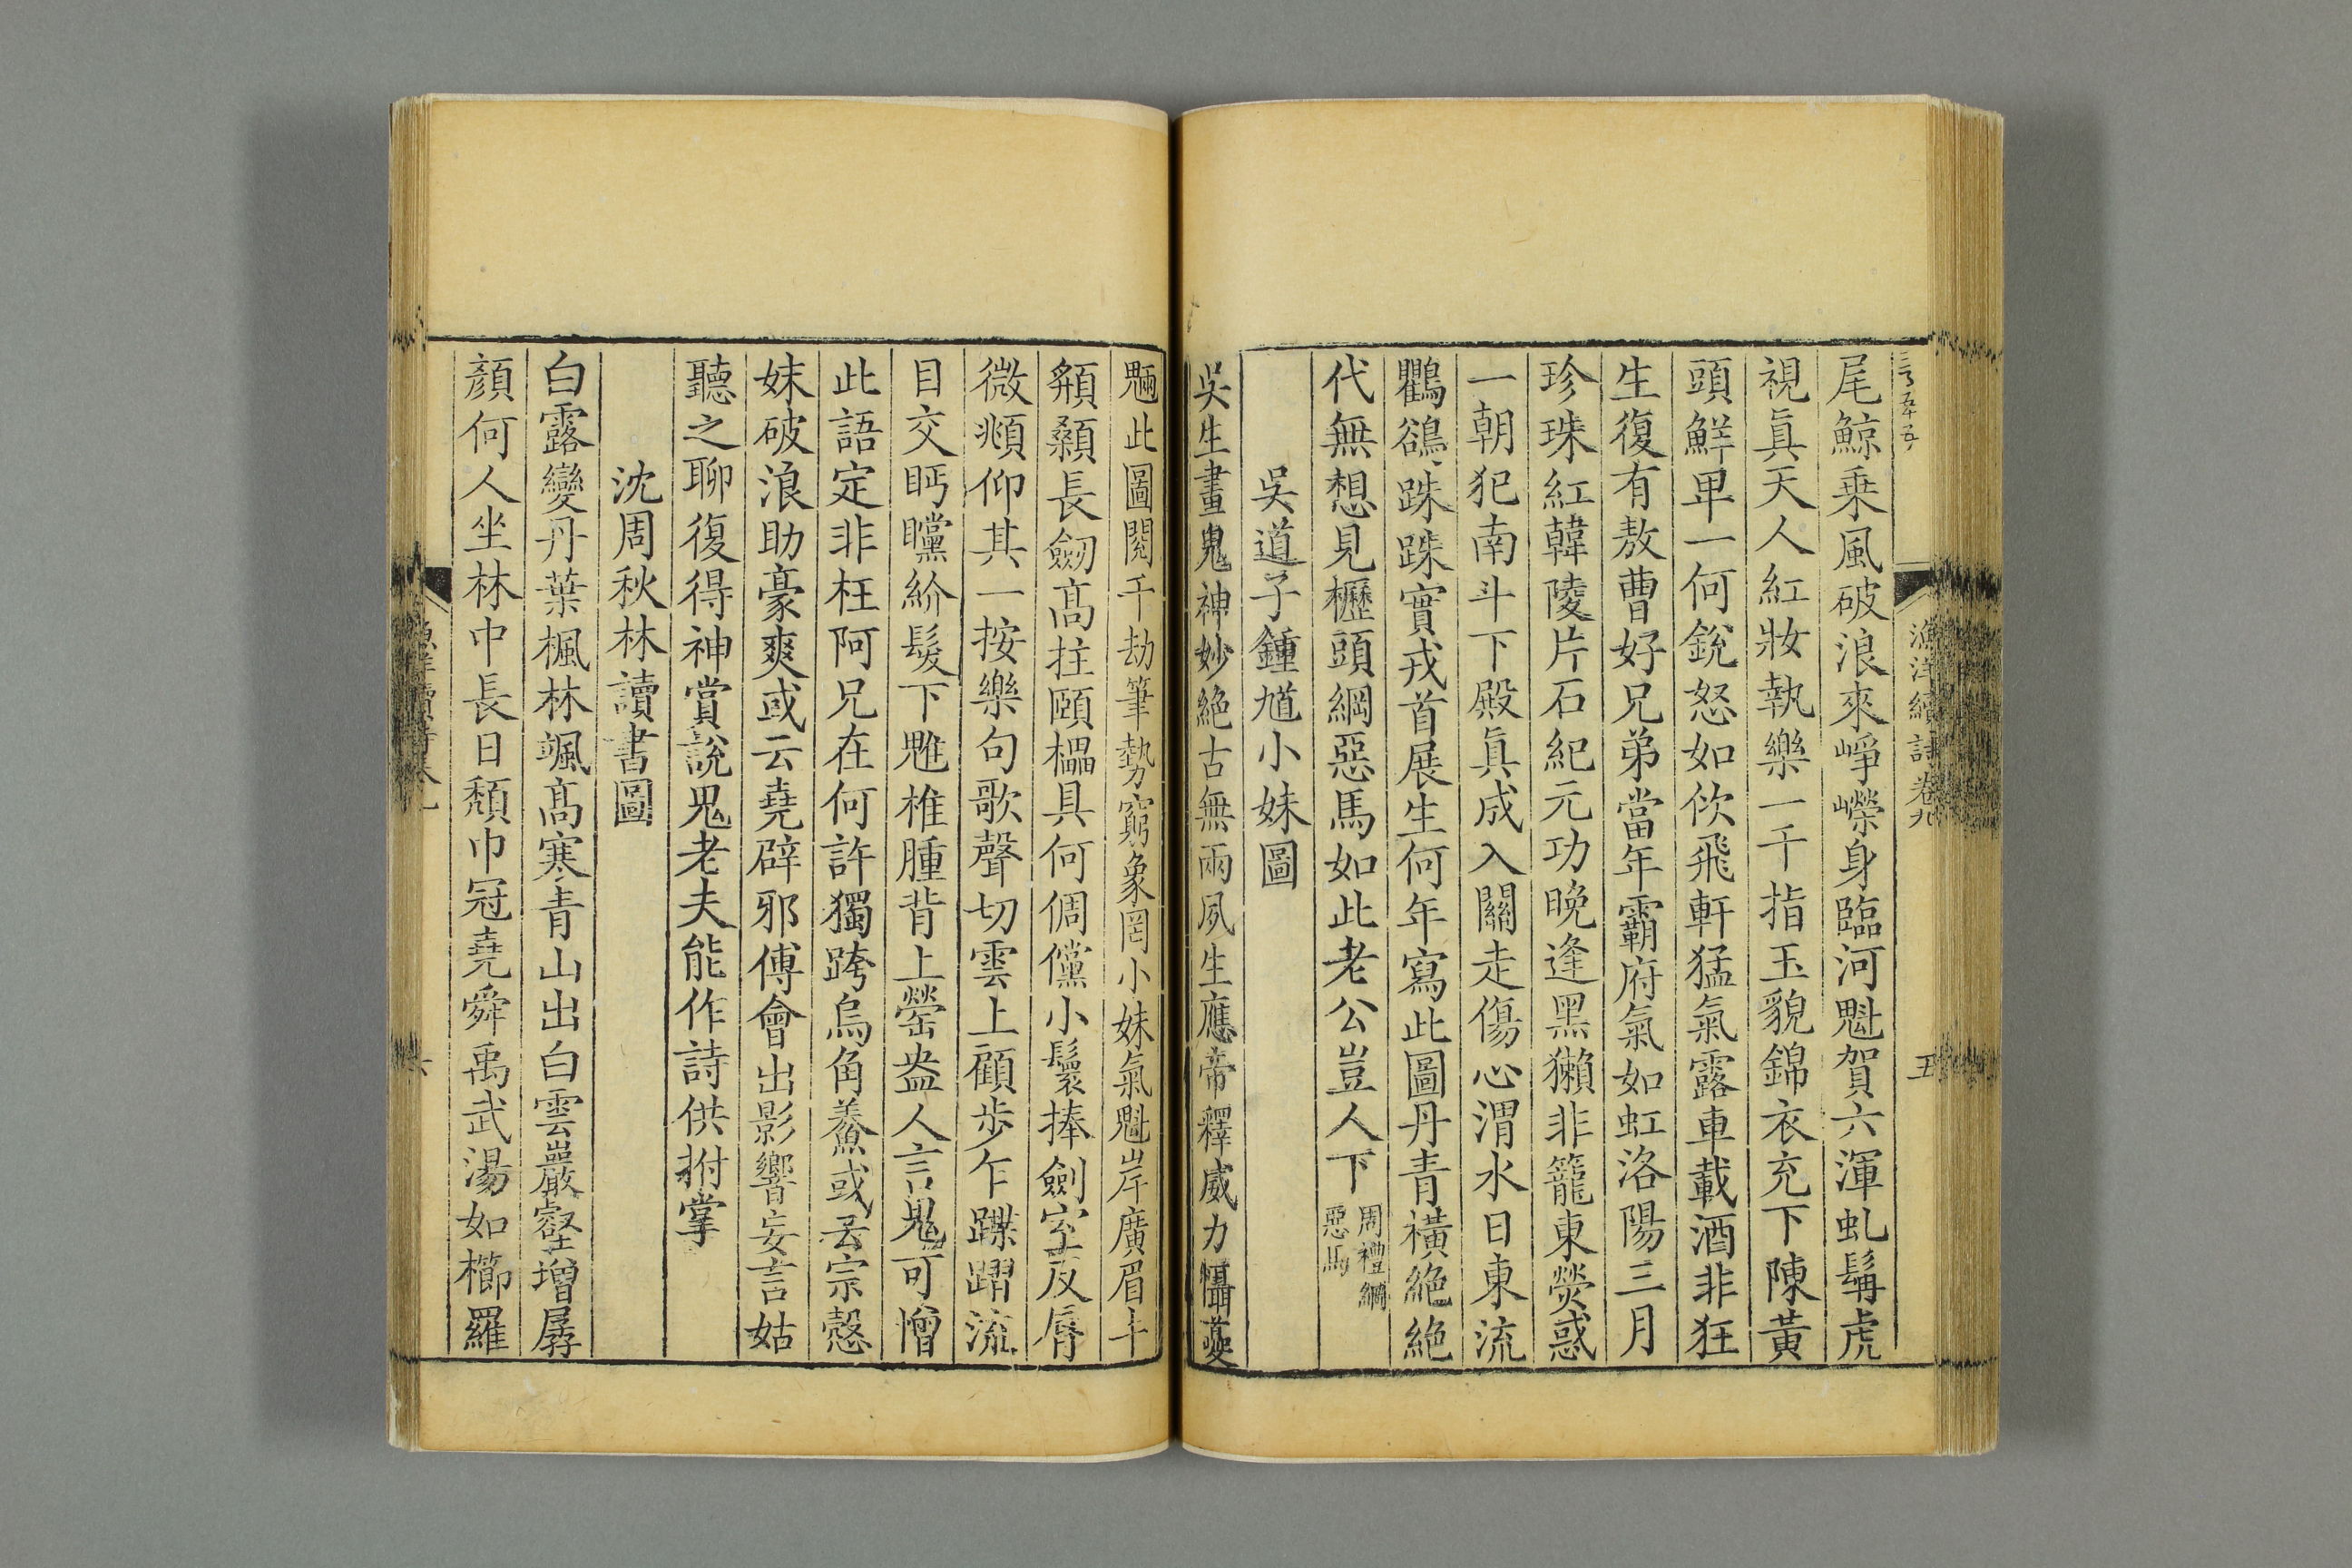 漁洋續詩卷九
五
尾鯨乘風破浪來崢嶸身臨河魁賀六渾虬鬚虎
視真天人紅妝執樂一千指玉貌錦衣充下陳黃
頭鮮卑一何銳怒如佽飛軒猛氣露車載酒非狂
生復有敖曹好兄弟當年霸府氣如虹洛陽三月
珍珠紅韓陵片石紀元功晚逢黑獺非籠東熒惑
一朝犯南斗下殿真成入關走傷心渭水日東流
鸜鵒跦跦實戎首展生何年寫此圖丹青橫絕絕
代無想見櫪頭綱惡馬如此老公豈人下周禮綱
惡馬
吳道子鍾馗小妹圖
吳生畫鬼神妙絕古無兩夙生應帝釋威力懾夔
魎此圖閱千劫筆勢窮象罔小妹氣魁岸廣眉十
顙長劒高拄頤櫑具何倜儻小鬟捧劍室反脣
微頫仰其一按樂句歌聲切雲上顧步乍蹀躞流
目交眄矘紒髮下魋椎腫背上罃盎人言鬼可憎
此語定非枉阿兄在何許獨跨烏角鯗或云宗愨
妹破浪助豪爽或云堯辟邪傅會出影響妄言姑
聽之聊復得神賞說鬼老夫能作詩供拊掌
沈周秋林讀書圖
白露變丹葉楓林颯高寒青山出白雲巖壑增孱
顏何人坐林中長日頹巾冠堯舜禹武湯如櫛羅